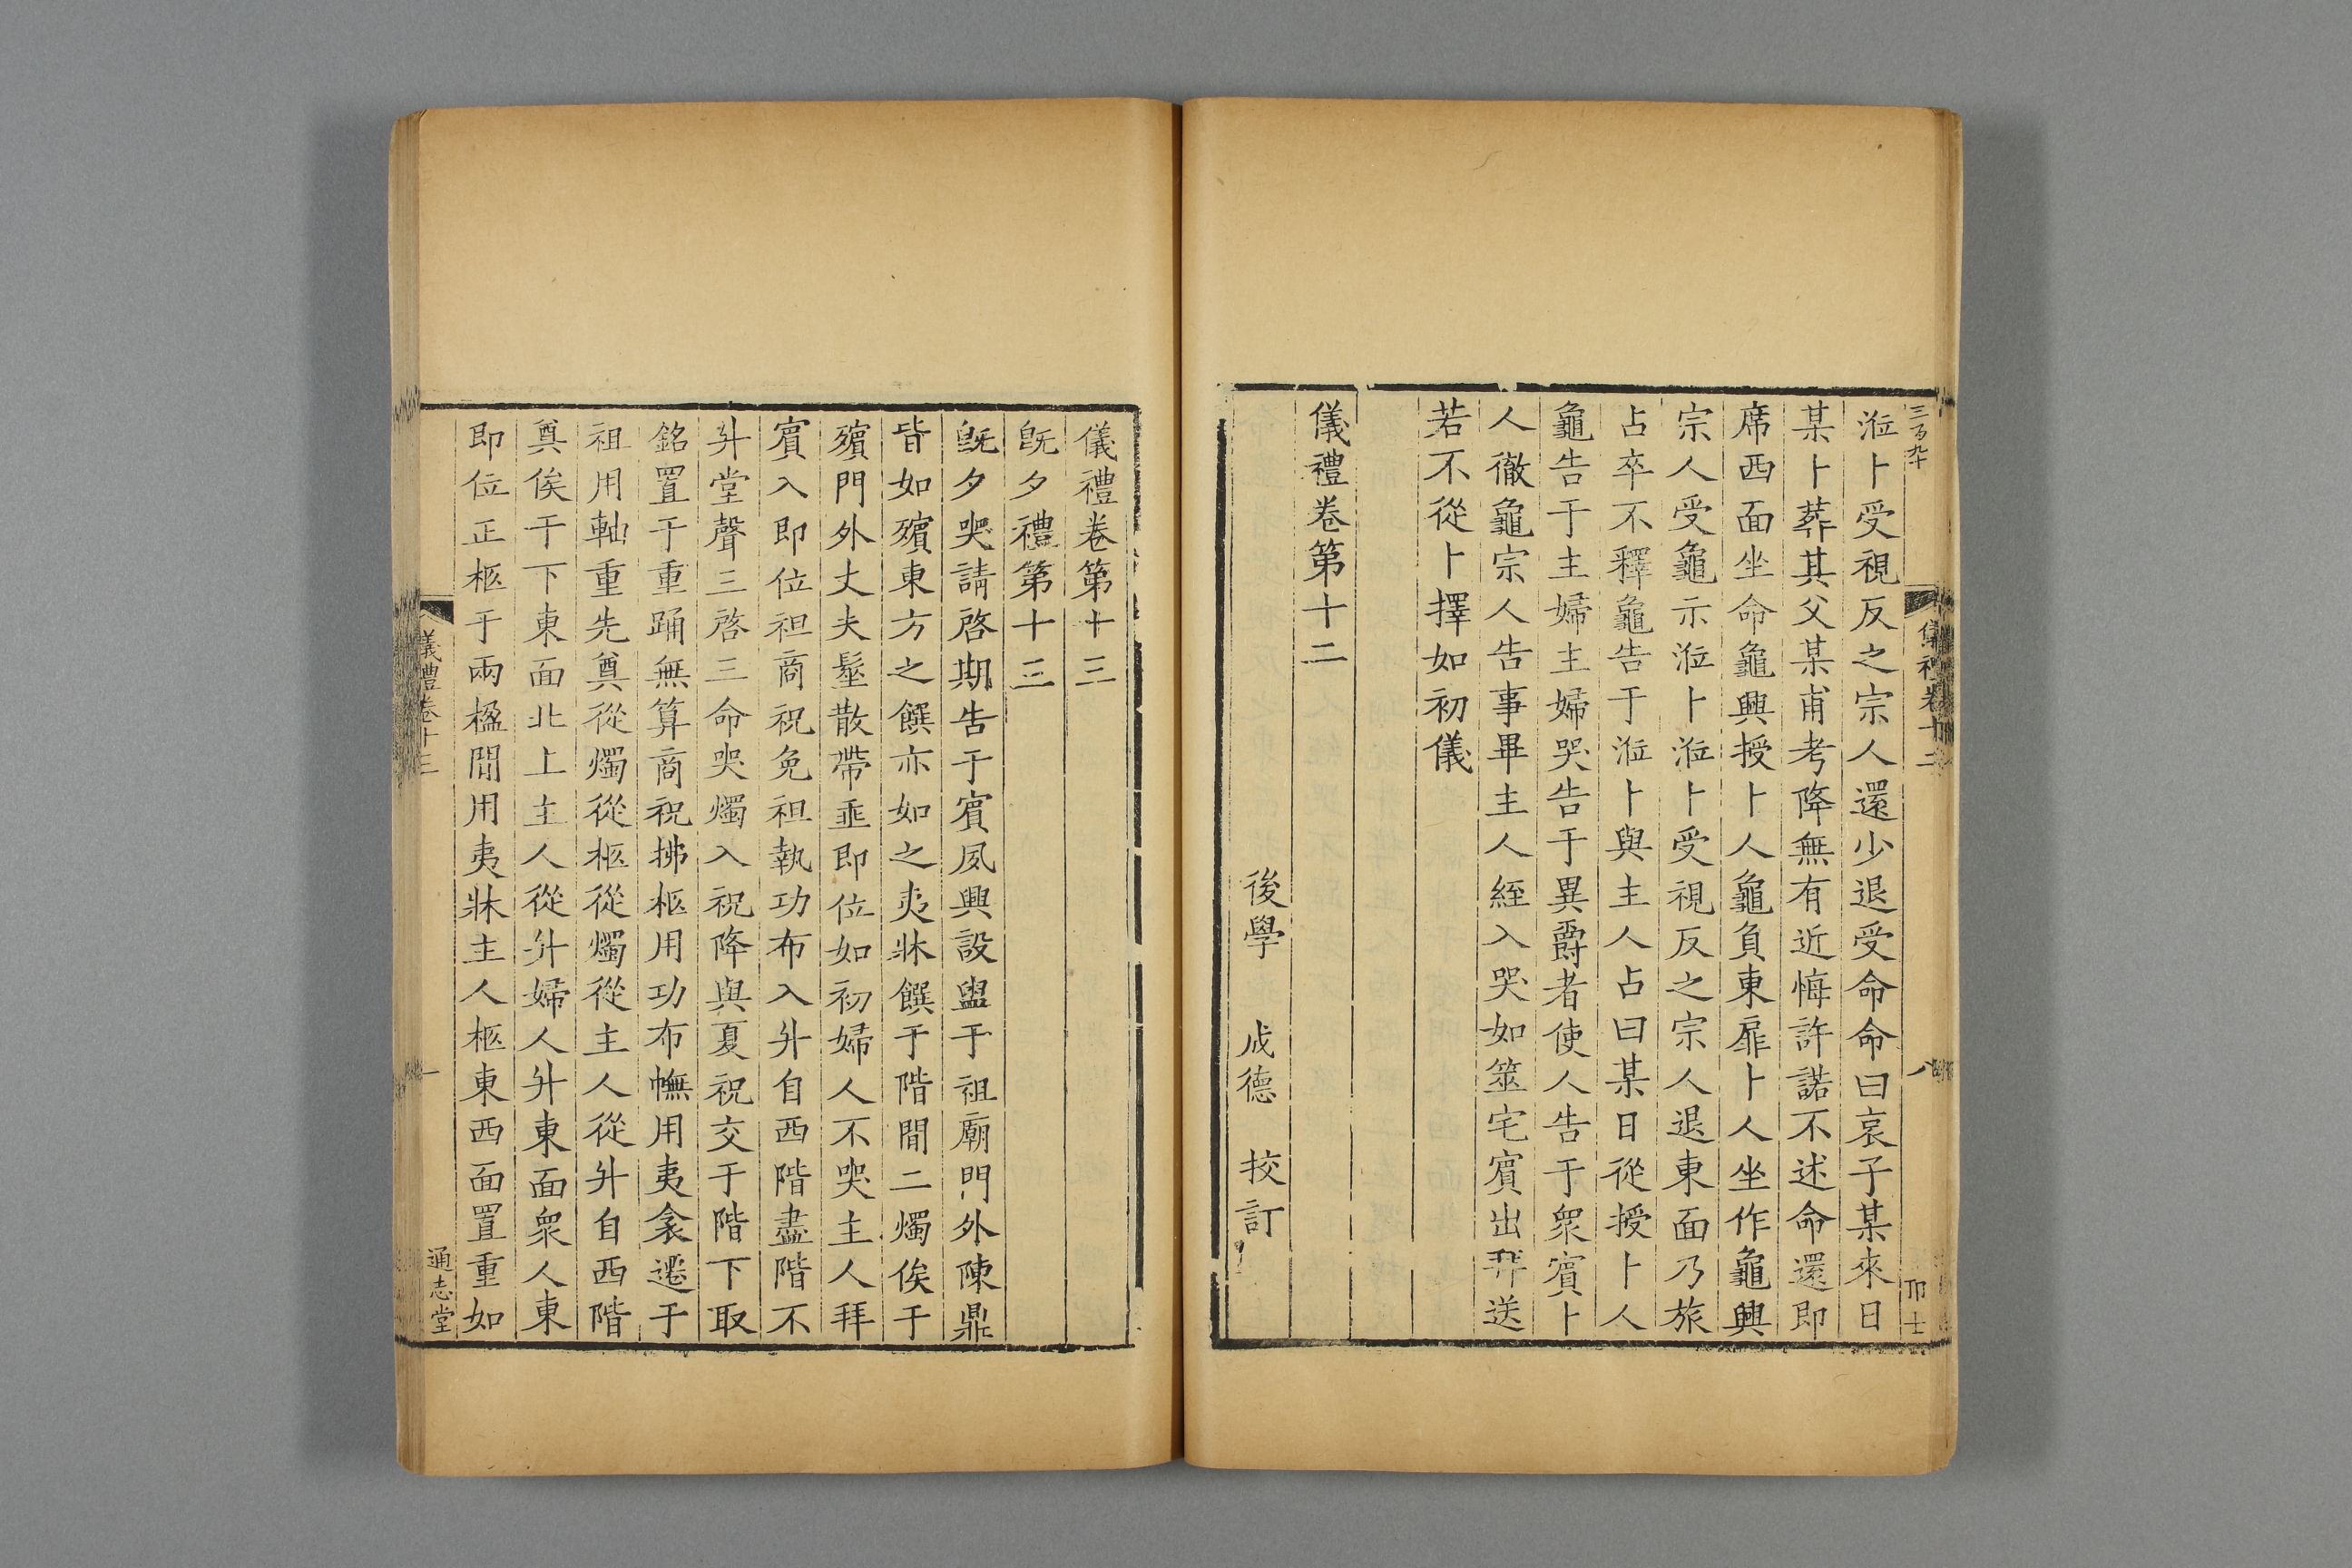 三百九十
儀禮卷十二
八
卭士
涖卜受視反之宗人還少退受命命曰哀子某來日
某卜葬其父某甫考降無有近悔許諾不述命還即
席西面坐命龜興授卜人龜負東扉卜人坐作龜興
宗人受龜示涖卜涖卜受視反之宗人退東面乃旅
占卒不釋龜告于涖卜與主人占曰某日從授卜人
龜告于主婦主婦哭告于異爵者使人告于衆賓卜
人徹龜宗人告事畢主人絰入哭如筮宅賓出拜送
若不從卜擇如初儀
儀禮卷第十二
後學 成德 校訂
儀禮卷第十三
旣夕禮第十三
旣夕哭請啓期告于賓夙興設盥于祖廟門外陳鼎
皆如殯東方之饌亦如之夷牀饌于階間二燭俟于
殯門外丈夫髽散帶垂即位如初婦人不哭主人拜
賓入即位袒商祝免袒執功布入升自西階盡階不
升堂聲三啓三命哭燭入祝降與夏祝交于階下取
銘置于重踊無算商祝拂柩用功布幠用夷衾遷于
祖用軸重先奠從燭從柩從燭從主人從升自西階
奠俟于下東面北上主人從升婦人升東面衆人東
即位正柩于兩楹間用夷牀主人柩東西面置重如
儀禮卷十三
一
通志堂